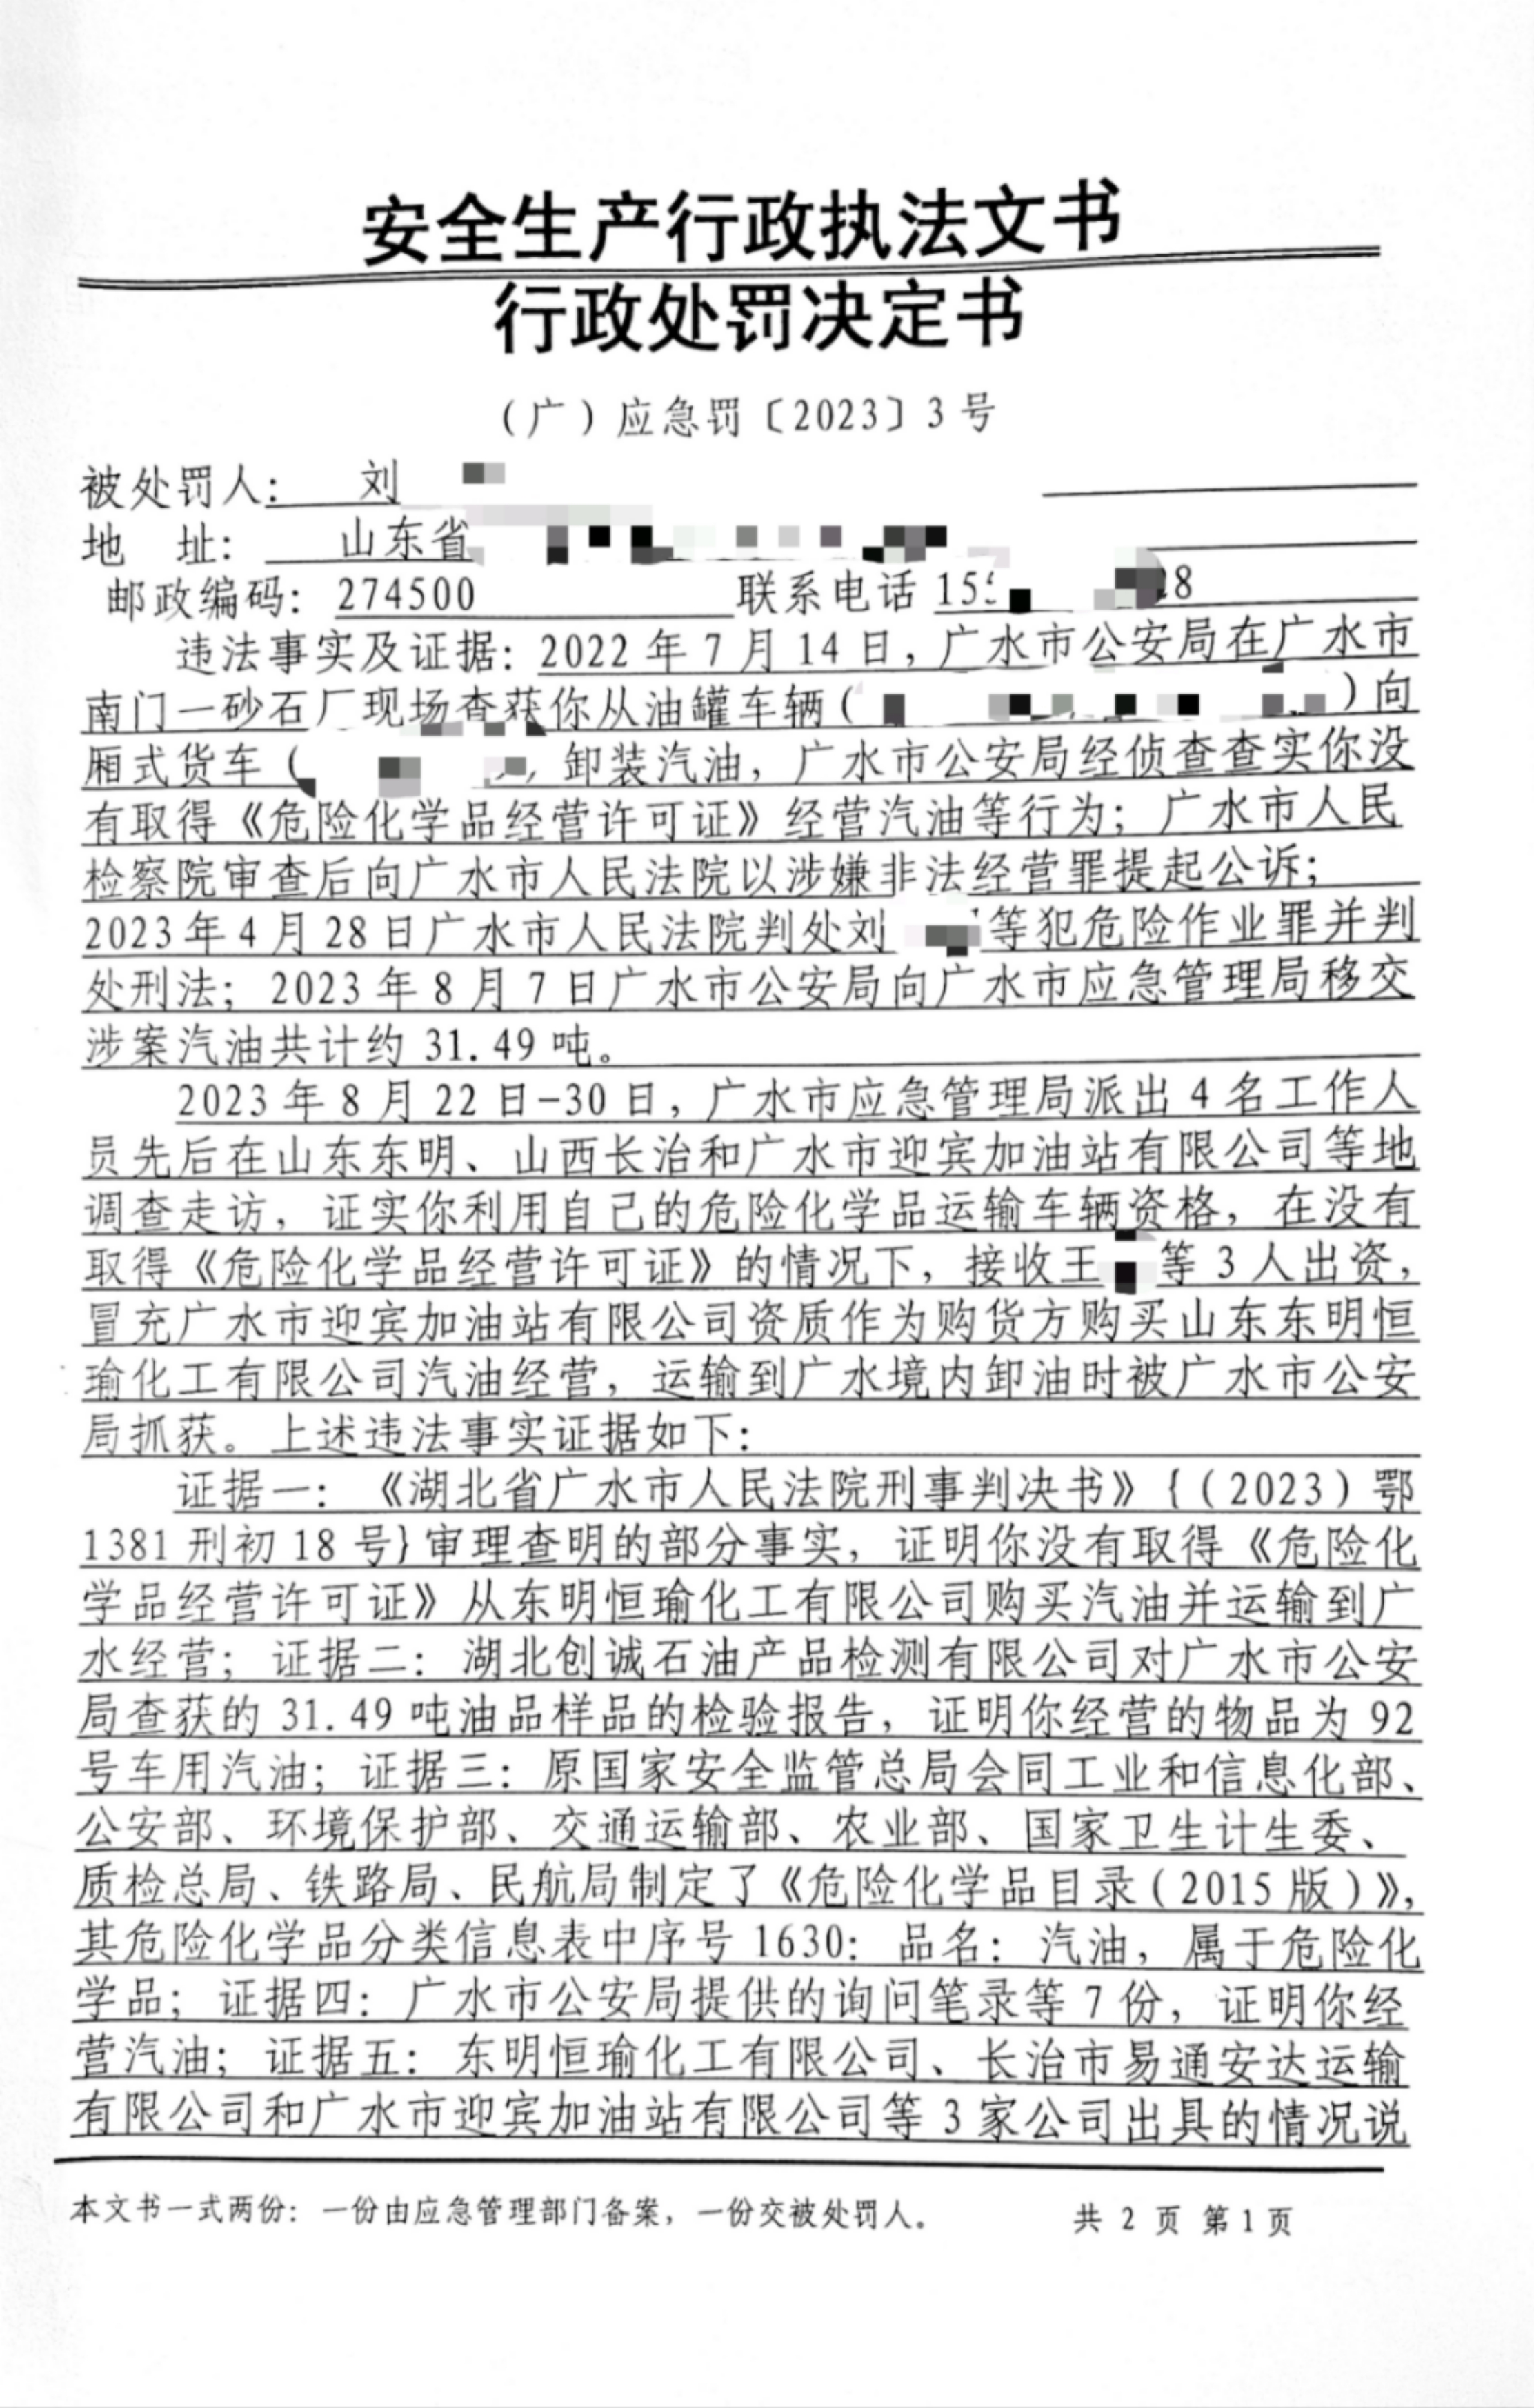 安全生产行政执法文书
行政处罚决定书
（广）应急罚〔2023〕3号
被处罚人： 刘
地 址： 山东省
邮政编码：274500 联系电话 155 28
违法事实及证据：2022年7月14日，广水市公安局在广水市
南门一砂石厂现场查获你从油罐车辆（ ）向
厢式货车（ ）卸装汽油，广水市公安局经侦查查实你没
有取得《危险化学品经营许可证》经营汽油等行为；广水市人民
检察院审查后向广水市人民法院以涉嫌非法经营罪提起公诉；
2023年4月28日广水市人民法院判处刘 等犯危险作业罪并判
处刑法；2023年8月7日广水市公安局向广水市应急管理局移交
涉案汽油共计约31.49吨。
2023年8月22日-30日，广水市应急管理局派出4名工作人
员先后在山东东明、山西长治和广水市迎宾加油站有限公司等地
调查走访，证实你利用自己的危险化学品运输车辆资格，在没有
取得《危险化学品经营许可证》的情况下，接收王 等3人出资，
冒充广水市迎宾加油站有限公司资质作为购货方购买山东东明恒
瑜化工有限公司汽油经营，运输到广水境内卸油时被广水市公安
局抓获。上述违法事实证据如下：
证据一：《湖北省广水市人民法院刑事判决书》{（2023）鄂
1381刑初18号}审理查明的部分事实，证明你没有取得《危险化
学品经营许可证》从东明恒瑜化工有限公司购买汽油并运输到广
水经营；证据二：湖北创诚石油产品检测有限公司对广水市公安
局查获的31.49吨油品样品的检验报告，证明你经营的物品为92
号车用汽油；证据三：原国家安全监管总局会同工业和信息化部、
公安部、环境保护部、交通运输部、农业部、国家卫生计生委、
质检总局、铁路局、民航局制定了《危险化学品目录（2015版）》，
其危险化学品分类信息表中序号1630：品名：汽油，属于危险化
学品；证据四：广水市公安局提供的询问笔录等7份，证明你经
营汽油；证据五：东明恒瑜化工有限公司、长治市易通安达运输
有限公司和广水市迎宾加油站有限公司等3家公司出具的情况说
本文书一式两份：一份由应急管理部门备案，一份交被处罚人。 共 2 页 第1页